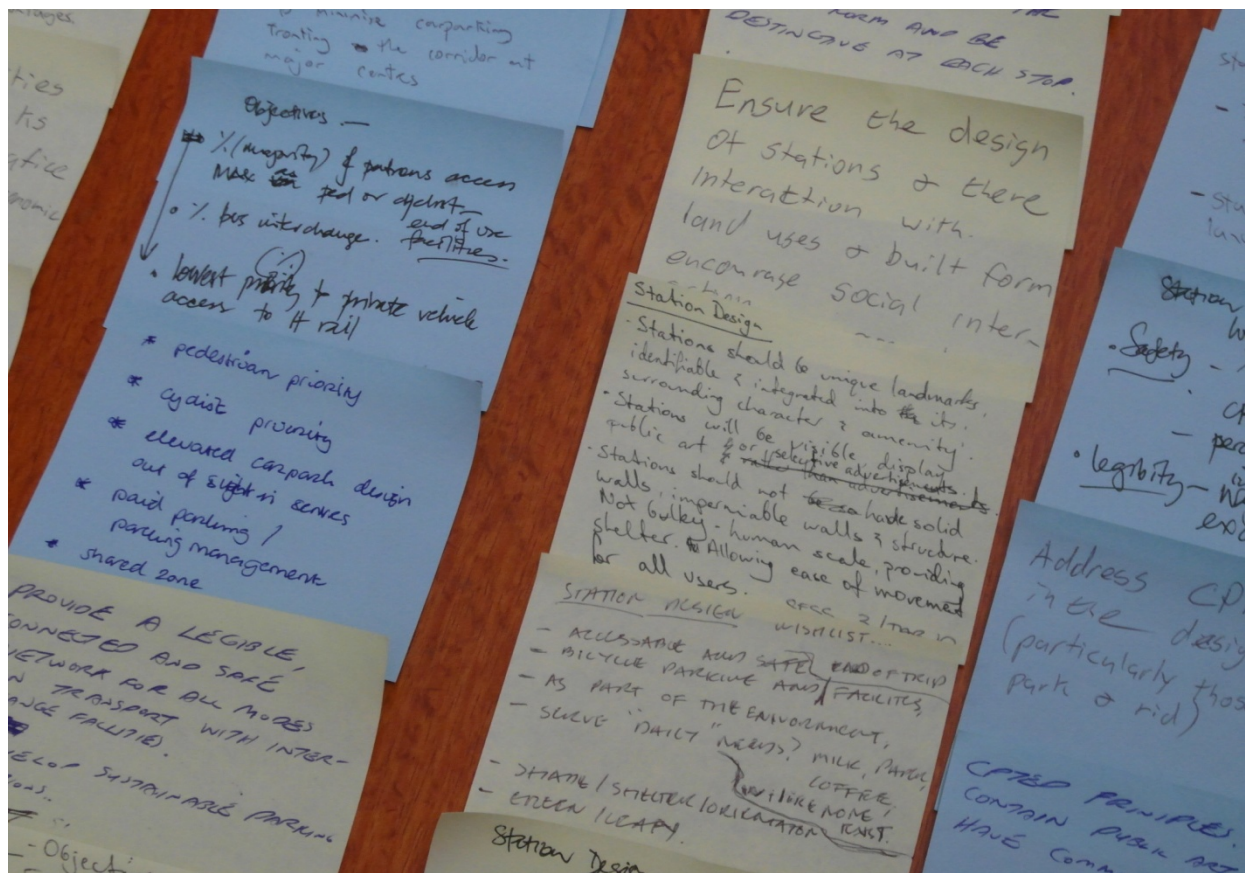 ties
ks
minimise carparking
fronting the corridor at
major centres
Objectives —
% (majority) of patrons access
MAX
ped or cyclist —
end of use
facilities.
• % bus interchange.
(%)
• lowest priority to private vehicle
access to H rail
* pedestrian priority
* cyclist priority
* elevated carpark design
out of sight in centres
* paid parking /
parking management
* shared zone
PROVIDE A LEGIBLE,
CONNECTED AND SAFE
NETWORK FOR ALL MODES
TRANSPORT WITH INTER-
SUSTAINABLE PARKING
- Objecti
FORM AND BE
DESTINCTIVE AT EACH STOP.
Ensure the design
of stations & there
interaction with
land uses & built form
encourage social inter-
Station Design
• Stations should be unique landmarks,
identifiable & integrated into the its
surrounding character & amenity.
• Stations will be visible display
public art & or selective advertisments.
rather than advertisements.
• Stations should not be so hard solid
walls, impermiable walls & structure.
Not bulkey - human scale, providing
shelter. Allowing ease of movement
for all users.
STATION DESIGN
WISHLIST...
- ACCESSABLE AND SAFE
- BICYCLE PARKING AND END OF TRIP FACILITIES,
- AS PART OF THE ENVIORMENT,
- SERVE "DAILY" NEEDS? MILK, PAPER,
COFFEE,
WHERE NONE
EXIST.
- SHADE/SHELTER/ORIENTATION
- GREEN/LEAFY.
Station Desig
Station
• Safety -
• legibility -
Address CP
in the desig
(particularly thos
park & rid)
CPTED PRINCIPLES.
CONTAIN PUBLIC ART
HAVE COMM